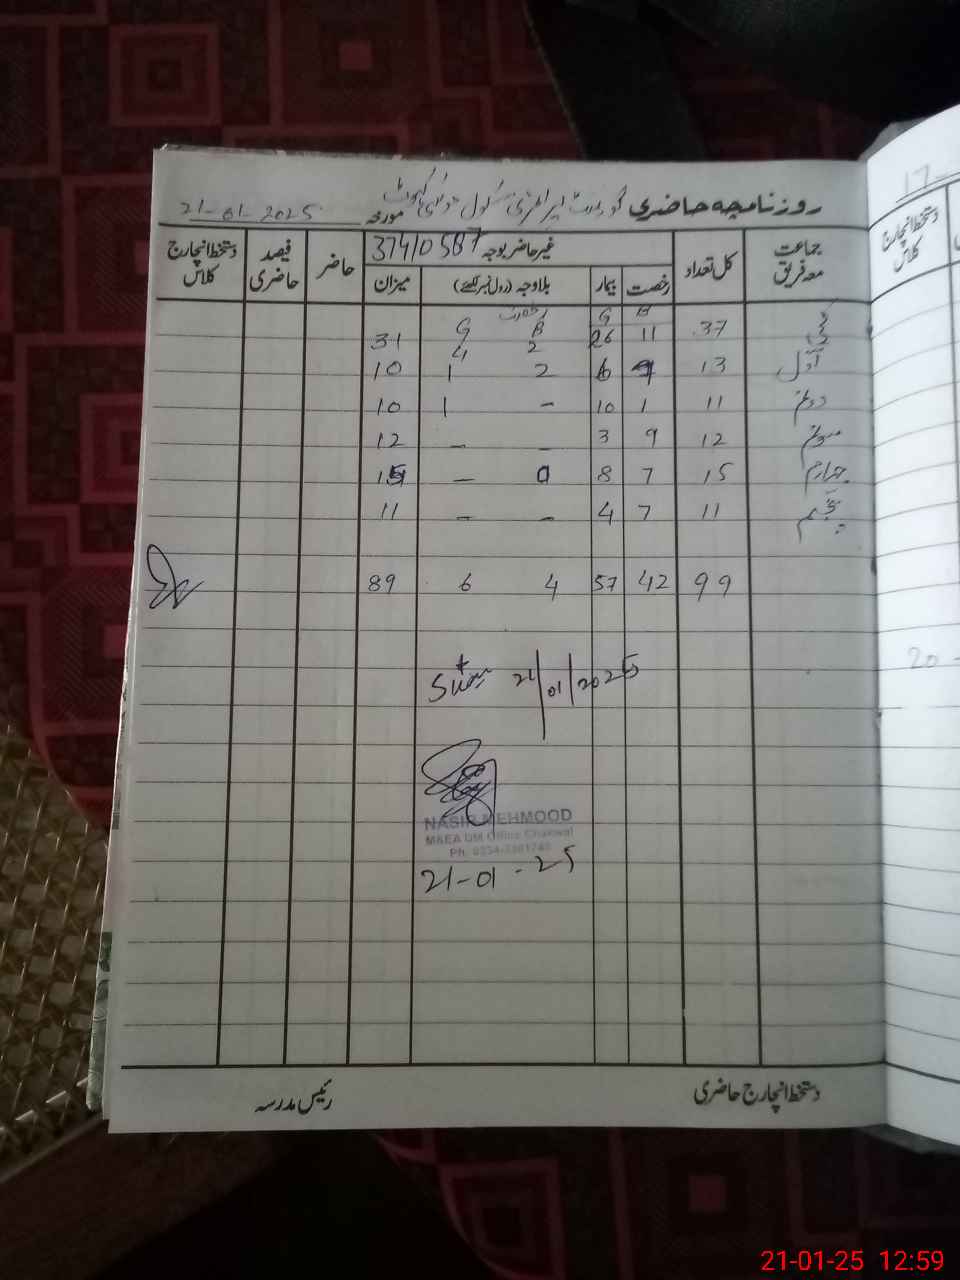 روزنامچہ حاضری گورنمنٹ پرائمری سکول مورخہ 21-01-2025
جماعت معہ فریق کل تعداد غیر حاضر بوجہ 37410587 حاضر فیصد حاضری دستخط انچارج کلاس
رخصت بیمار بلاوجہ (رول نمبر لکھئے) میزان
B G رخصت
کچی 37 11 26 B G 31
2 4
اول 13 6 2 1 10
دوئم 11 1 10 - 1 10
سوئم 12 9 3 - - 12
چہارم 15 7 8 0 - 15
پنجم 11 7 4 - - 11
99 42 57 4 6 89
21/01/2025
NASIR MEHMOOD
MAEA DM Office Chakwal
21-01-25
دستخط انچارج حاضری رئیس مدرسہ
17-
دستخط انچارج کلاس
20-
21-01-25 12:59